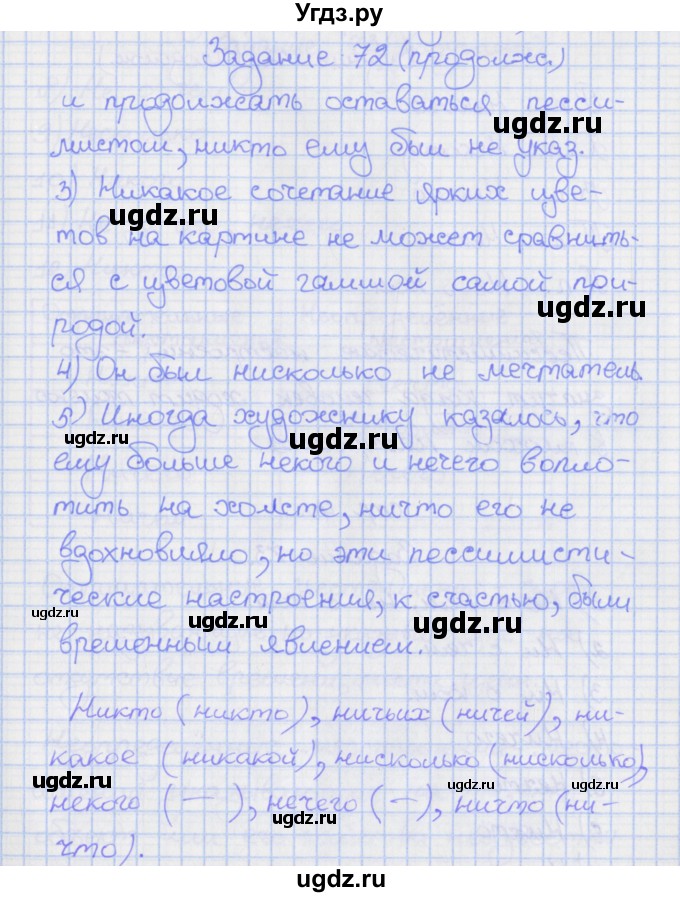 Угдз.ру
Задание 72 (продолж.)
и продолжать оставаться песси-
ugdz.ru
мистом, никто ему был не указ.
ugdz.ru
3) Никакое сочетание ярких цве-
ugdz.ru
тов на картине не может сравнить-
ся с цветовой гаммой самой при-
ugdz.ru
родой.
4) Он был нисколько не мечтатель.
5) Иногда художнику казалось, что
ugdz.ru
ему больше некого и нечего вопло-
тить на холсте, ничто его не
ugdz.ru
вдохновляло, но эти пессимисти-
ческие настроения, к счастью, были
ugdz.ru ugdz.ru ugdz.ru
временным явлением.
Никто (никто), ничьих (ничей), ни-
какое (никакой), нисколько (нисколько),
ugdz.ru ugdz.ru ugdz.ru
некого (—), нечего (—), ничто (ни-
ugdz.ru
что).
ugdz.ru